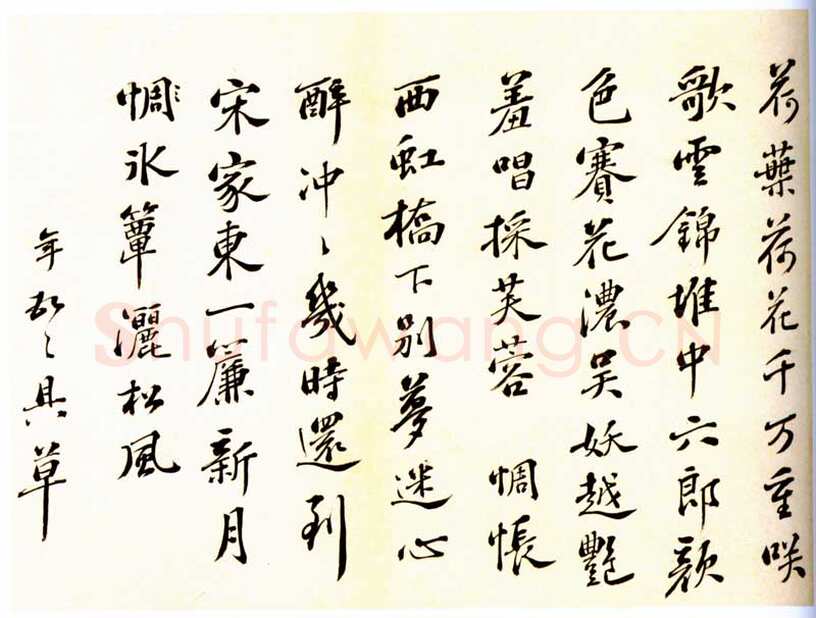 荷葉荷花千万重咲
歌雲錦堆中六郎顔
色賽花濃吴妖越艷
羞唱採芙蓉 惆悵
西虹橋下別夢迷心
醉冲〻幾時還到
宋家東一簾新月
惆氷簟灑松風
年 具草
Shufawang.CN